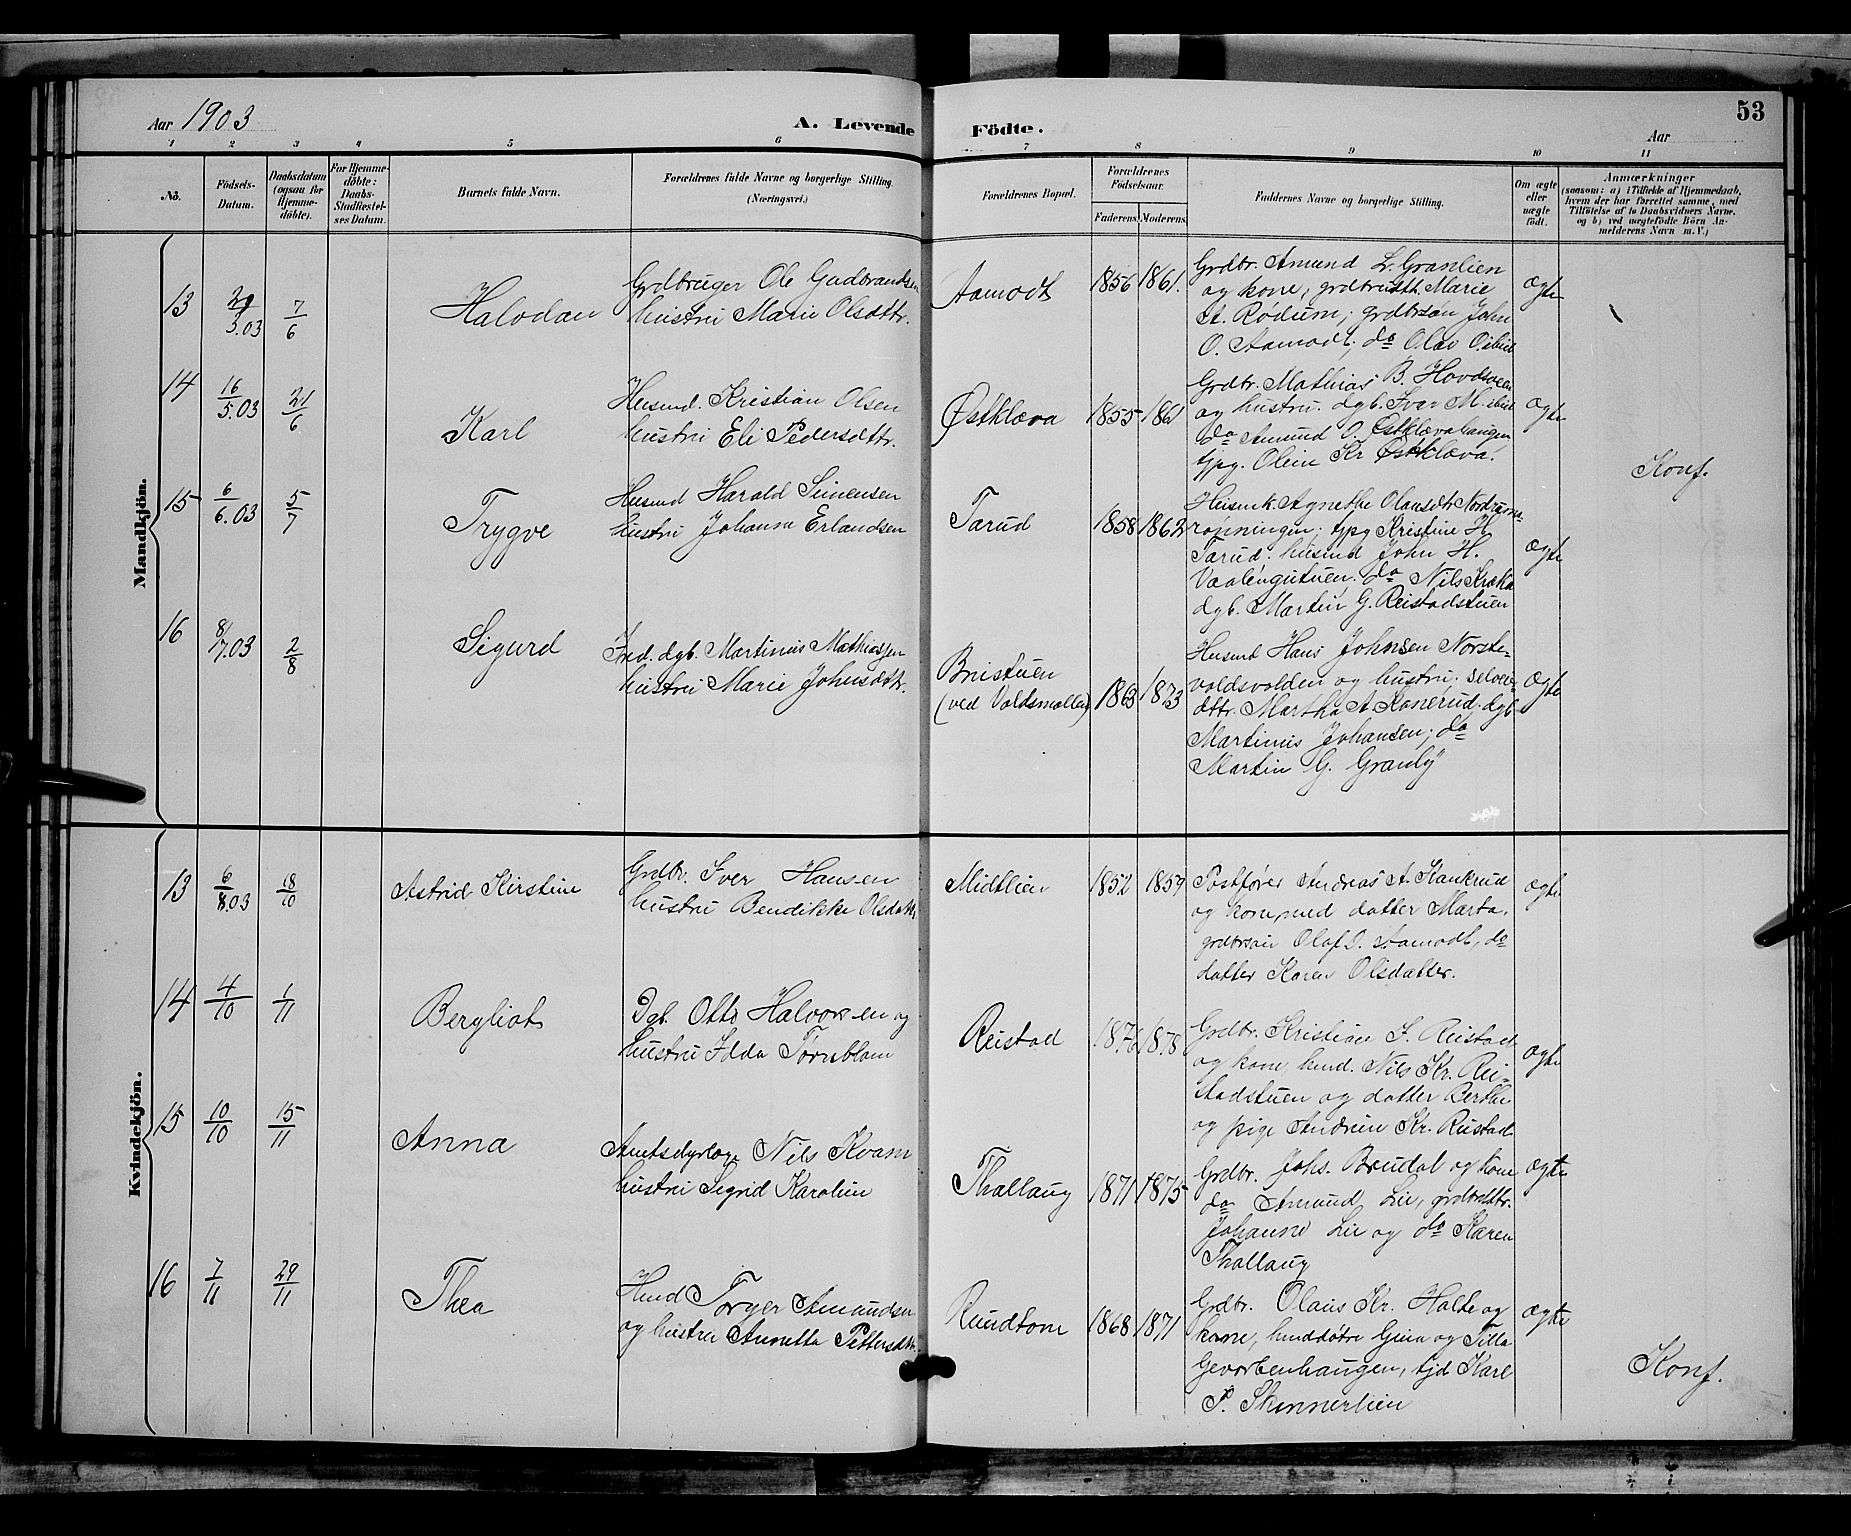 53
Aar 1903
A. Levende
Födte.
Aar
1 2 3 4 5 6 7 8 9 10 11
No.
Födsels-
Datum.
Daabsdatum
(ogsaa for
Hjemme-
döbte).
For Hjemme-
döbte:
Daabs-
Stadfæstel-
ses Datum.
Barnets fulde Navn.
Forældrenes fulde Navne og borgerlige Stilling.
(Næringsvei.)
Forældrenes Bopæl.
Forældrenes
Födselsaar.
Faderens. Moderens.
Faddernes Navne og borgerlige Stilling.
Om ægte
eller
uægte
födt.
Anmærkninger
(saasom: a) i Tilfælde af Hjemmedaab,
hvem der har forrettet samme, med
Tilföielse af to Daabsvidners Navne,
og b) ved uægtefödte Börn An-
melderens Navn m. V.)
Mandkjön.
13
3.03
7/6
Halvdan
Grdbruger Ole Gudbrandsen
hustru Marie Olsdttr.
Aamodt
1856 1861.
Grdbr. Amund L. Granlien
og kone, grdbrdtt. Marie
A. Rødum; grdbrsøn John
O. Aamodt, do Olav Oisbiet
ægte
14
16/5.03
21/6
Karl
Husmd. Kristian Olsen
hustru Eli Pedersdttr.
Østklæva
1855 1861
Grdbr. Mathias B. Hovdsveen
og hustru. dgb. Ivar M. sbiet
do Amund O. Østklævahaugen
tjpg. Olein Kr Østklæva.
ægte
15
6/6.03
5/7
Trygve
Husmd Harald Simensen
hustru Johanne Erlandsen
Tarud
1858 1862
Husmk Agnethe Olausdtr Nordrum-
rønningen; tjpg Kristine H.
Tarud. husmd John H.
Vaalengstuen. do Nils Kræka
dgb. Martin G. Reistadstuen
ægte
Konf.
16
8/7.03
2/8
Sigurd
Fred. dgb. Martinus Mathiassen
hustru Marie Johnsdttr.
Bruistuen
(ved Voldsmøllen)
1863 1873
Husmd Hans Johnsen Norste-
voldsvolden og hustru. selvei-
dttr. Martha A. Konerud. dgb
Martinus Johansen; do
Martin G. Granly
ægte
Kvindekjön.
13
6/8.03
18/10
Astrid Kirstine
Grdbr. Iver Hansen
hustru Bendikke Olsdatter
Midtlien
1852 1859
Postfører Andreas A. Kankrud
og kone med datter Marta.
grdbrsøn Olaf I. Aamodt, do
datter Karen Olsdatter.
ægte
14
4/10
1/11
Bergliot
Dgb. Otto Halvorsen og
hustru Idda Tørnblom
Reistad
1876 1878
Grdbr. Kristian J. Reistad
og kone, husmd. Nils Kr. Rei-
stadstuen og datter Berthe
og pige Andrein Kr. Rustad
ægte
15
10/10
15/11
Anna
Amtsdyrlæge Nils Kvam
hustru Sigrid Karoline
Thallaug
1871 1875
Grdbr. Johs. Bræidal og kone
do Amund Lie, grdbrdttr.
Johanne Lie og do Karen
Thallaug
ægte
16
7/11
29/11
Thea
Husmd Torger Amundsen
og hustru Annette Pettersdtr.
Rundtom
1868 1871
Grdbr. Olaus Kr. Holte og
kone, husmddøtre Gina og Tilla
Gevorbenhaugen, tjd Karl
P. Skinnerlien
ægte
Konf.